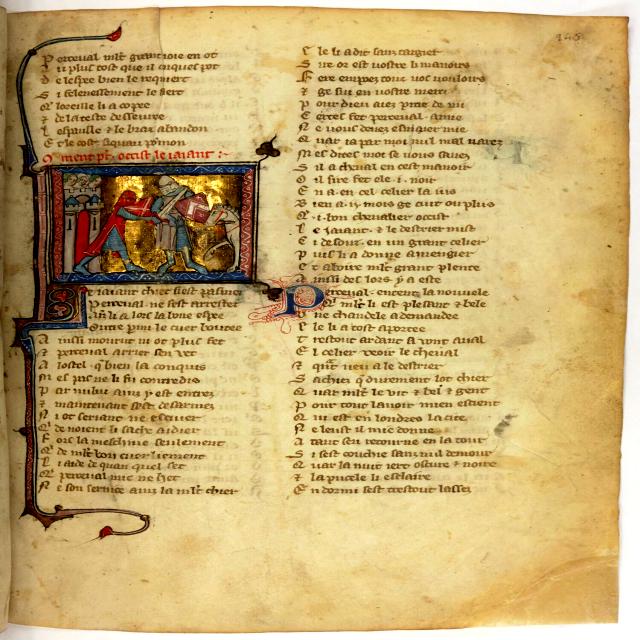 Perceval mlt grant ioie en ot
plus tost que il onques pot
De lespee bien le requiert
Si felenessement le fiert
loreille li a copee
de la teste desseuree
lespaulle & le braz abandon
Et le cost iusquau pomon
ment pcȝ. occist le iaiant :
iaiant chiet sest pasmez
Perceval ne sest arrestez
li a lors la bone espee
parmi le cuer boutee
A mort ni ot plus fet
& perceval arrier sen vet
A lostel qͥ bien la conquis
nes pas ne li fu contredis
Par mi luis sanz y est entrez
& maintenant sest desarmez
Ni ot seriant ne escuier
Qͥ de noient li sache aidier
Fors la meschine seulement
Qͥ de mlt bon cuer liement
Li aide de quan quel set
Qͥ perceval mie ne het
Ne son seruice ainz la mlt chier
148
Et le li a dit sanz targier
Sire or est vostre li manoirs
Fere empoez touz voz vouloirs
& ge sui en vostre merci
Pour dieu aiez pitie de mi
Certes fet perceval amie
Ne vous deuez esmaier mie
Quar ia par moi nul mal naurez
Mes dites moi se vous sauez
Sil a cheual en cest manoir
Oil sire fet ele . i . noir
En a en cel celier la ius
Bien a . ij. mois ge cuit ou plus
Qͥ . i . bon cheualier occist
Le iaiant . & le destrier mist
Ci desouz . en un grant celier
Puis li a donne a mengier
Et a boire mlt grant plente
Ainssi des lors y a este
Perceval . entent la nouuele
Qͥ mlt li est plesant & bele
Une chandele a demandee
Ele li a tost aportee
Trestout ardant a vont aual
El celier veoir le cheual
& qͣnt veu a le destrier
Sachiez qͥ durement lot chier
Quar mlt le vit & bel & gent
Pour tout lauoir mien escient
Qui est en londres la cite
Ne leust il mie donne
A tant seu retourne en la tour
Si sest couchie sanz nul demour
Quar la nuit iert oscure & noire
& la pucele li esclaire
Endormi sest trestout lassez